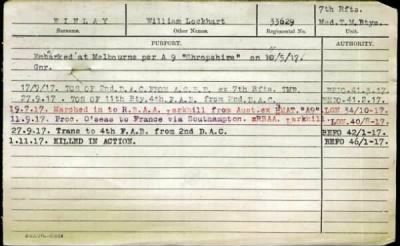 FINLAY William Lockhart 33629 7th Rfts. Med.T.M.Btys.
Surname. Other Names Regimental No. Unit.
PURPORT. AUTHORITY.
Embarked at Melbourne per A 9 "Shropshire" on 10/5/17.
Gnr.
17/9/17. TOS OF 2nd.D.A.C. FROM ex 7th Rfts. TMB. BEFO.41.3.17.
27.9.17. TOS OF 11th Bty.4th.F.A.B. from 2nd.D.A.C. BEFO.41.2.17.
19.7.17. Marched in to R.B.A.A. Larkhill from Aust.ex HMAT."A9" LGN 34/10-17.
11.9.17. Proc. O'seas to France via Southampton. RBAA. Larkhill LGN.40/8-17.
27.9.17. Trans to 4th F.A.B. from 2nd D.A.C. BEFO 42/1-17.
1.11.17. KILLED IN ACTION. BEFO 46/1-17.